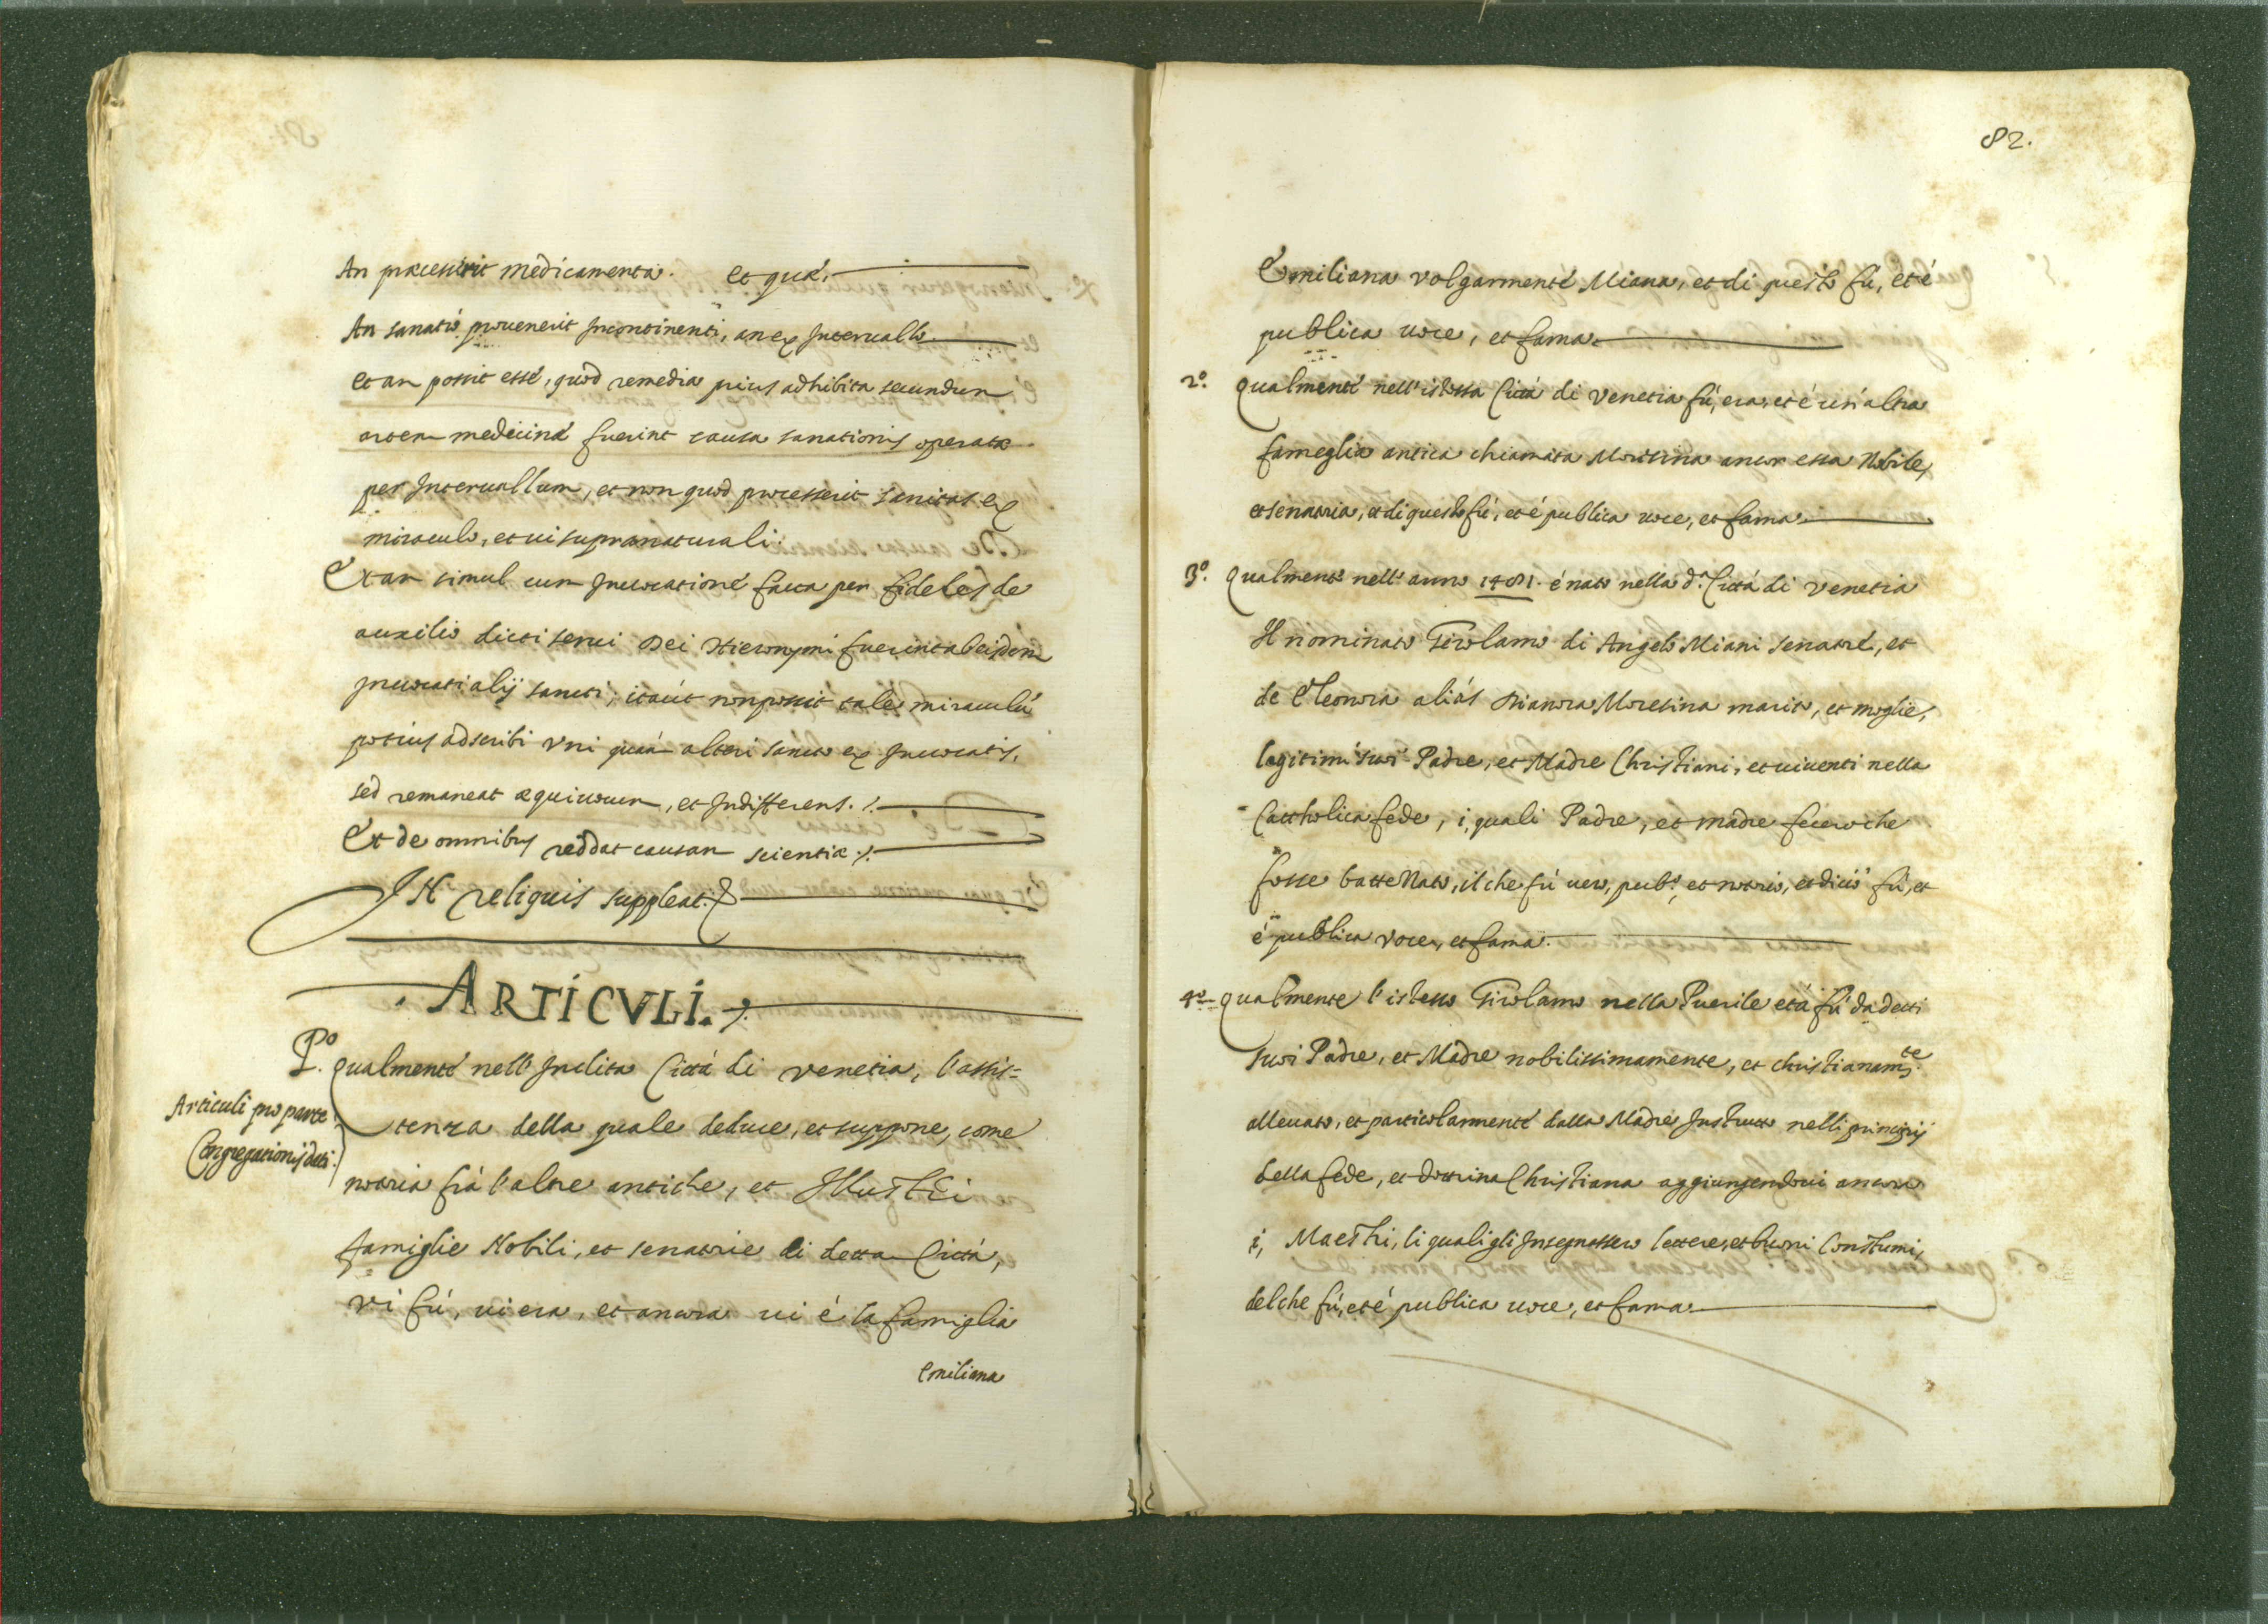 An præcesserit medicamenta. et quæ.
An sanatio provenerit Incontinenti, an ex Intervallo.
et an possit esse, quod remedia prius adhibita secundum
artem medicinæ fuerint causa sanationis operatæ
per Intervallum, et non quod processerit sanitas ex
miraculo, et vi supranaturali.
Et an simul cum Invocatione facta per fideles de
auxilio dicti servi Dei Hieronymi fuerint ab eisdem
Invocati alij sancti, ita ut non possit tale miraculũ
potius adscribi vni quàm alteri sancto ex Invocatis,
sed remaneat æquivocum, et Indifferens./.
Et de omnibus reddat causam scientiæ./.
IN reliquis suppleat.
. ARTICVLI./.
P.o qualmente nell'Inclita Città di Venetia, l'assis=
Articuli pro parte
Congregationis dati.
tenza della quale deduce, et suppone, come
notoria frà l'altre antiche, et Illustri
famiglie Nobili, et senatorie di detta Città,
vi fù, vi era, et ancora vi è la famiglia
Emiliana
82.
Emiliana volgarmente Miana, et di questo fù, et è
publica voce, et fama.
2.o qualmente nell'istessa Città di Venetia fù, era, et è un'altra
fameglia antica chiamata Morisina ancor essa Nobile,
et senatoria, et di questo fù, et è publica voce, et fama.
3.o qualmente nell'anno 1481. è nato nella d.a Città di Venetia
Il nominato Girolamo di Angelo Miani senatore, et
de Eleonora aliàs Dianora Moresina marito, et moglie,
legitimi suoi Padre, et Madre Christiani, et viventi nella
Cattholica fede, i, quali Padre, et madre fecero che
fosse battezzato, il che fù vero, pub.o, et notorio, et dicio fù, et
è publica voce, et fama.
4.o qualmente l'istesso Girolamo nella Puerile età fù da detti
suoi Padre, et Madre nobilissimamente, et christianam.te
allevato, et particolarmente dalla Madre Instrutto nelli principij
della fede, et dottrina Christiana aggiungendovi ancora
i, Maestri, li quali gli Insegnassero lettere, et buoni Constumi,
del che fù, et è publica voce, et fama.